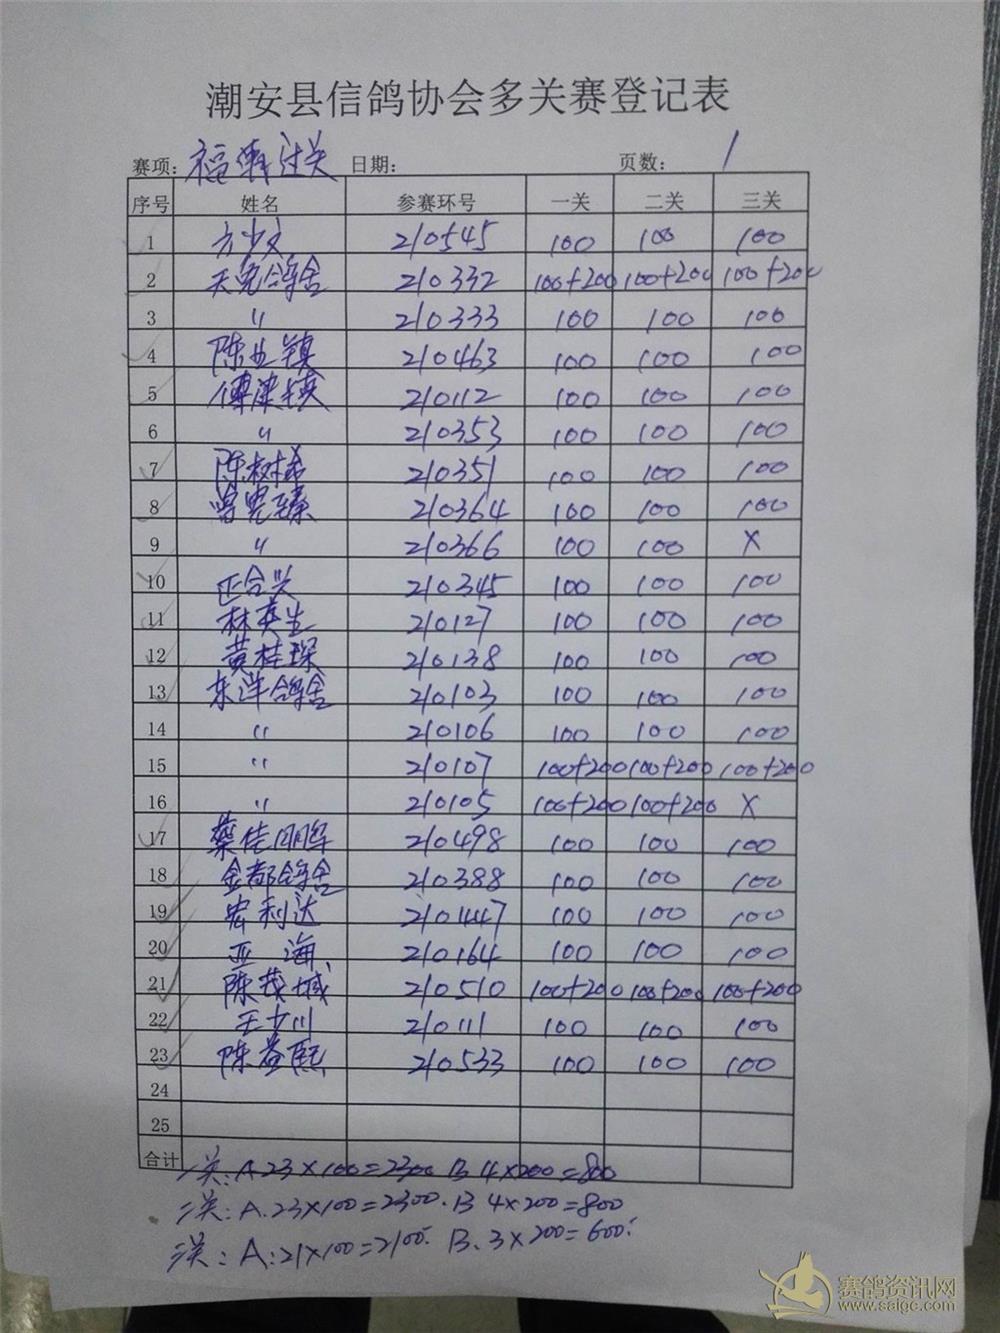 潮安县信鸽协会多关赛登记表
赛项: 福 过关 日期: 页数: 1
序号 姓名 参赛环号 一关 二关 三关
1 方少文 210545 100 100 100
2 天宪鸽舍 210332 100+200 100+200 100+200
3 〃 210333 100 100 100
4 陈业镇 210463 100 100 100
5 210112 100 100 100
6 〃 210353 100 100 100
7 陈树 210351 100 100 100
8 曾宪臻 210364 100 100 100
9 〃 210366 100 100 X
10 正合兴 210345 100 100 100
11 林英生 210127 100 100 100
12 黄桂琛 210138 100 100 100
13 东洋鸽舍 210103 100 100 100
14 〃 210106 100 100 100
15 〃 210107 100+200 100+200 100+200
16 〃 210105 100+200 100+200 X
17 蔡佳明 210498 100 100 100
18 金都鸽舍 210388 100 100 100
19 宏利达 2101447 100 100 100
20 亚海 210164 100 100 100
21 陈茂城 210510 100+200 100+200 100+200
22 王少川 210111 100 100 100
23 陈益熙 210533 100 100 100
24
25
合计 一关: A 23×100=2300 B 4×200=800
二关: A.23×100=2300. B 4×200=800
三关: A:21×100=2100. B.3×200=600.
赛鸽资讯网
www.saigc.com